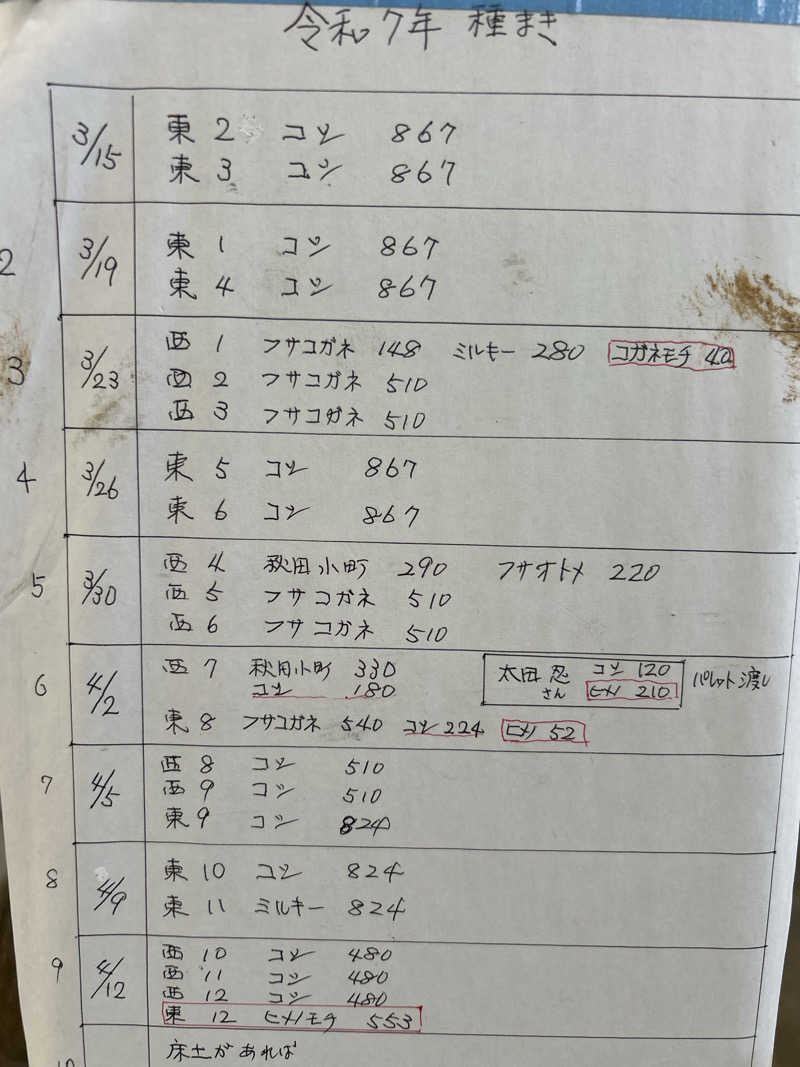 令和7年 種まき
3/15 東 2 コシ 867
東 3 コシ 867
2 3/19 東 1 コシ 867
東 4 コシ 867
3 3/23 西 1 フサコガネ 148 ミルキー 280 コガネモチ 40
西 2 フサコガネ 510
西 3 フサコガネ 510
4 3/26 東 5 コシ 867
東 6 コシ 867
5 3/30 西 4 秋田小町 290 フサオトメ 220
西 5 フサコガネ 510
西 6 フサコガネ 510
6 4/2 西 7 秋田小町 330 太田 忍 コシ 120 パレット渡し
コシ 180 さん ヒメノ 210
東 8 フサコガネ 540 コシ 224 ヒメノ 52
7 4/5 西 8 コシ 510
西 9 コシ 510
東 9 コシ 824
8 4/9 東 10 コシ 824
東 11 ミルキー 824
9 4/12 西 10 コシ 480
西 11 コシ 480
西 12 コシ 480
東 12 ヒメノモチ 553
床土があれば